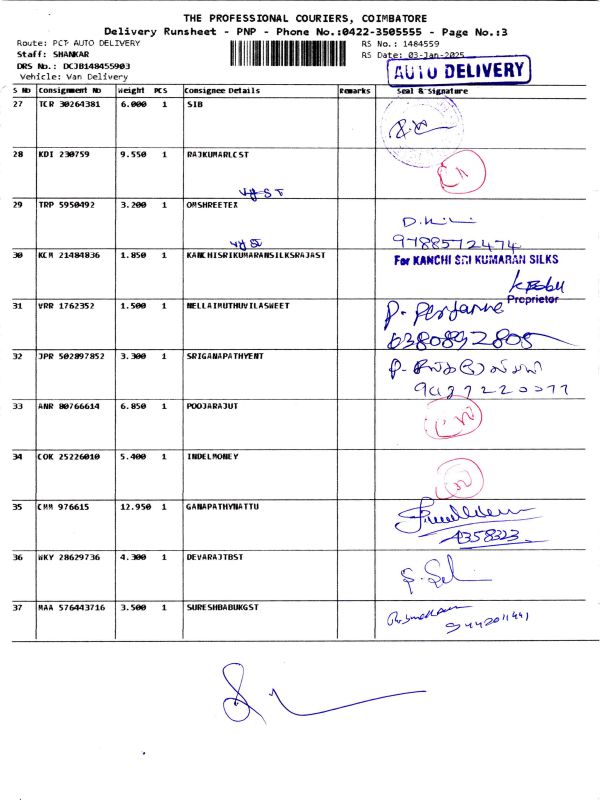 THE PROFESSIONAL COURIERS, COIMBATORE
Delivery Runsheet - PNP - Phone No.:0422-3505555 - Page No.:3
Route: PCT AUTO DELIVERY
RS No.: 1484559
Staff: SHANKAR
RS Date: 03-Jan-2025
DRS No.: DCJB148455903
AUTO DELIVERY
Vehicle: Van Delivery
S No Consignment No Weight PCS Consignee Details Remarks Seal & Signature
27 TCR 30264381 6.000 1 SIB
28 KDI 230759 9.550 1 RAJKUMARLCST
29 TRP 5950492 3.200 1 OMSHREETEX
9788572474
30 KCM 21484836 1.850 1 KANCHISRIKUMARANSILKSRAJAST
For KANCHI SRI KUMARAN SILKS
Proprietor
31 VRR 1762352 1.500 1 NELLAIMUTHUVILASWEET
6380892805
32 JPR 502897852 3.300 1 SRIGANAPATHYENT
33 ANR 80766614 6.850 1 POOJARAJUT
34 COK 25226010 5.400 1 INDELMONEY
35 CMM 976615 12.950 1 GANAPATHYNATTU
36 WKY 28629736 4.300 1 DEVARAJTBST
37 MAA 576443716 3.500 1 SURESHBABUKGST